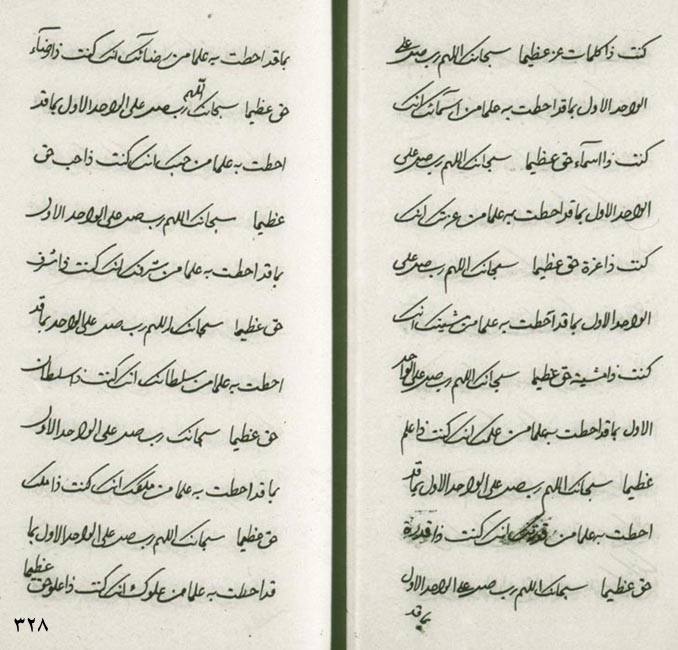 كنت ذا كلمات عز عظيما سبحانك اللهم رب صل على
الواحد الاول بما قد احطت به علما من اسمائك انك
كنت ذا اسمآء حق عظيما سبحانك اللهم رب صل على
الواحد الاول بما قد احطت به علما من عزتك انك
كنت ذا عزة حق عظيما سبحانك اللهم رب صل على
الواحد الاول بما قد احطت به علما من مشيتك انك
كنت ذا مشية حق عظيما سبحانك اللهم رب صل على الواحد
الاول بما قد احطت به علما من علمك انك كنت ذا علم
عظيما سبحانك اللهم رب صل على الواحد الاول بما قد
احطت به علما من قدرتك انك كنت ذا قدرة
حق عظيما سبحانك اللهم رب صل على الواحد الاول
بما قد
بما قد احطت به علما من رضائك انك كنت ذا رضآء
حق عظيما سبحانك اللهم رب صل على الواحد الاول بما قد
احطت به علما من حبك انك كنت ذا حب حق
عظيما سبحانك اللهم رب صل على الواحد الاول
بما قد احطت به علما من شرفك انك كنت ذا شرف
حق عظيما سبحانك اللهم رب صل على الواحد بما قد
احطت به علما من سلطانك انك كنت ذا سلطان
حق عظيما سبحانك رب صل على الواحد الاول
بما قد احطت به علما من ملكك انك كنت ذا ملك
حق عظيما سبحانك اللهم رب صل على الواحد الاول بما
قد احطت به علما من علوك انك كنت ذا علو حق عظيما
٣٢٨